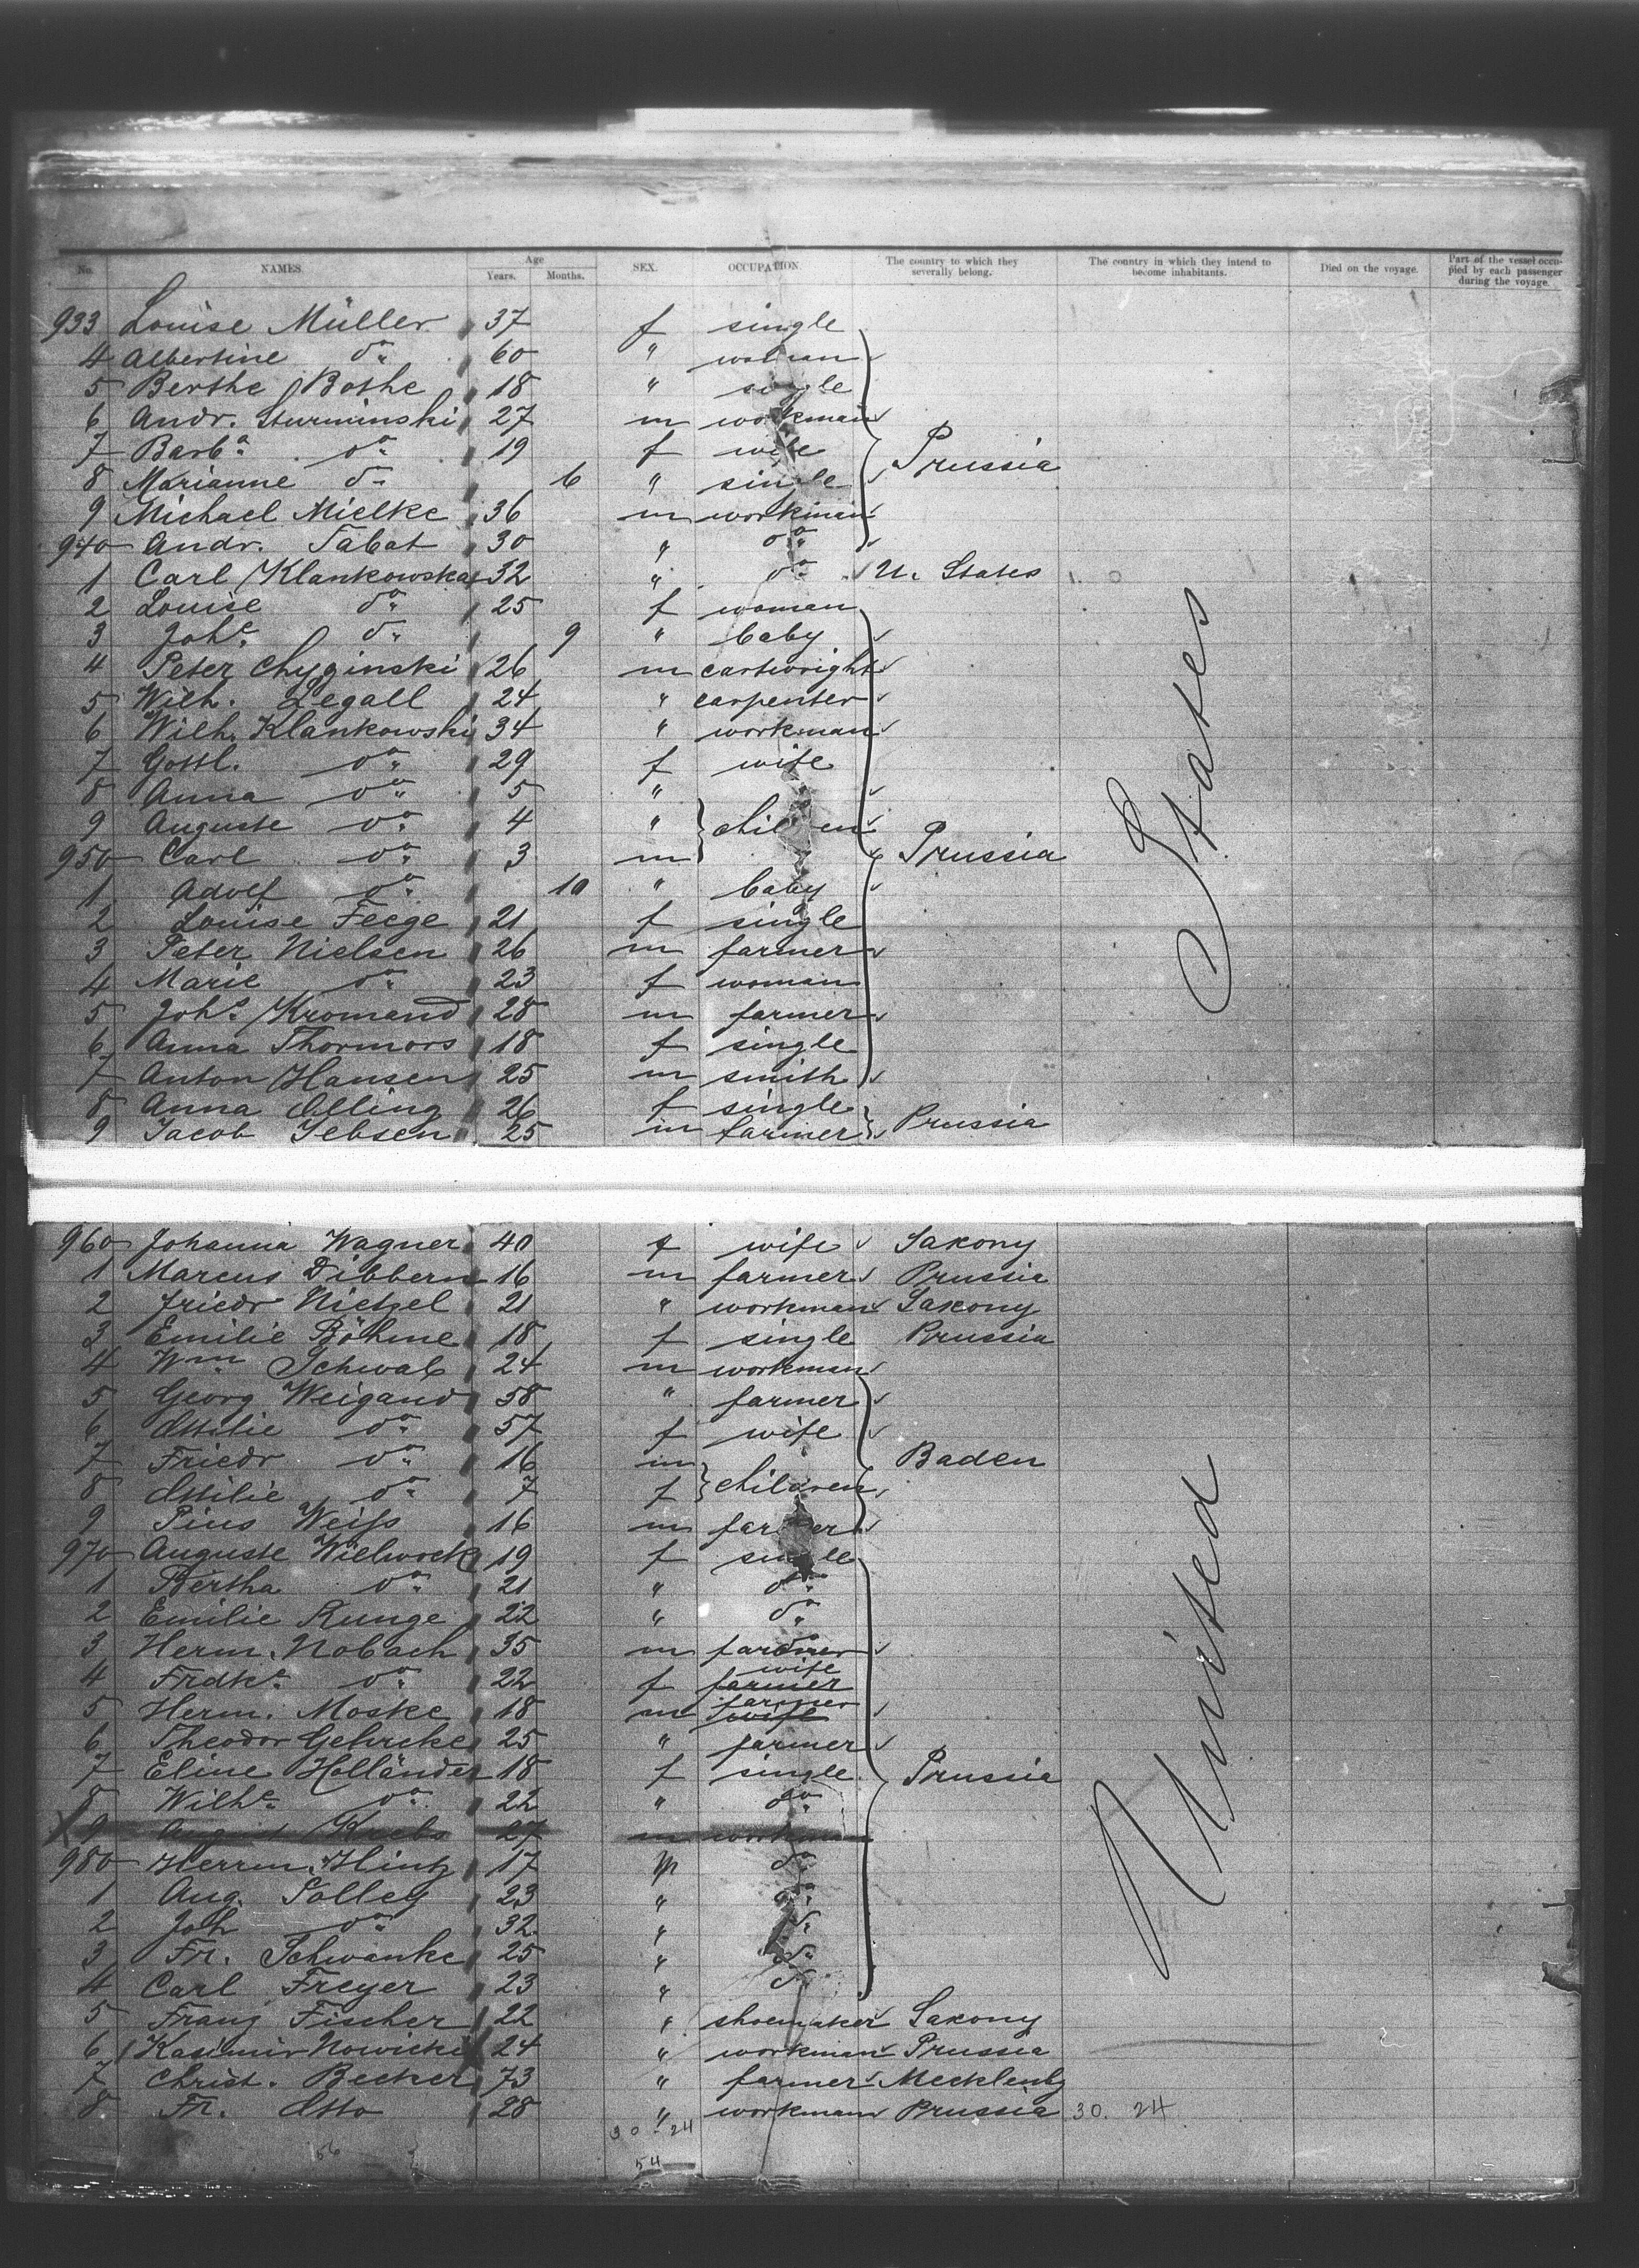 No. NAMES. Age Years. Months. SEX. OCCUPATION. The country to which they severally belong. The country in which they intend to become inhabitants. Died on the voyage. Part of the vessel occupied by each passenger during the voyage.
933 Louise Müller 37 f single
4 Albertine do 60 " woman
5 Berthe Bothe 18 " single
6 Andr. Sturminski 27 m workman
7 Barba do 19 f wife Prussia
8 Marianne do 6 " single
9 Michael Mielke 36 m workman
940 Andr. Tabat 30 " do
1 Carl Klankowska 32 " do U. States
2 Louise do 25 f woman
3 Johe do 9 " baby
4 Peter Chyginski 26 m cartwright
5 Wilh. Legall 24 " carpenter
6 Wilh. Klankowski 34 " workman
7 Gottl. do 29 f wife
8 Anna do 5 "
9 Auguste do 4 " children
950 Carl do 3 m Prussia
1 Adolf do 10 " baby
2 Louise Feege 21 f single
3 Peter Nielsen 26 m farmer
4 Marie do 23 f woman
5 Johs Kromand 28 m farmer
6 Anna Thormors 18 f single
7 Anton Hansen 25 m smith
8 Anna Olling 26 f single
9 Jacob Jebsen 25 m farmer Prussia
States
960 Johanna Wagner 40 f wife Saxony
1 Marcus Dibbern 16 m farmer Prussia
2 Friedr Nietzel 21 " workman Saxony
3 Emilie Böhme 18 f single Prussia
4 Wm Schwab 24 m workman
5 Georg Weigand 58 " farmer
6 Ottilie do 57 f wife
7 Friedr do 16 m Baden
8 Ottilie do 7 f children
9 Pius Weiss 16 m farmer
970 Auguste Wielwock 19 f single
1 Bertha do 21 " do
2 Emilie Runge 22 " do
3 Herm. Nobach 35 m farmer
4 Frdke do 22 f farmer wife
5 Herm. Moske 18 m wife farmer
6 Theodor Gehrcke 25 " farmer
7 Eline Holländer 18 f single Prussia
8 Wilhe do 22 " do
9 August Krebs 27 m workman
980 Herrm. Hintz 17 m do
1 Aug. Polley 23 " do
2 Joh do 32 " do
3 Fr. Schwanke 25 " do
4 Carl Freyer 23 " do
5 Franz Fischer 22 " shoemaker Saxony
6 Kasimir Nowicki 24 " workman Prussia
7 Christ. Becker 73 " farmer Mecklenbg
8 Fr. Otto 28 " workman Prussia 30. 24
United
30 - 24
56
54